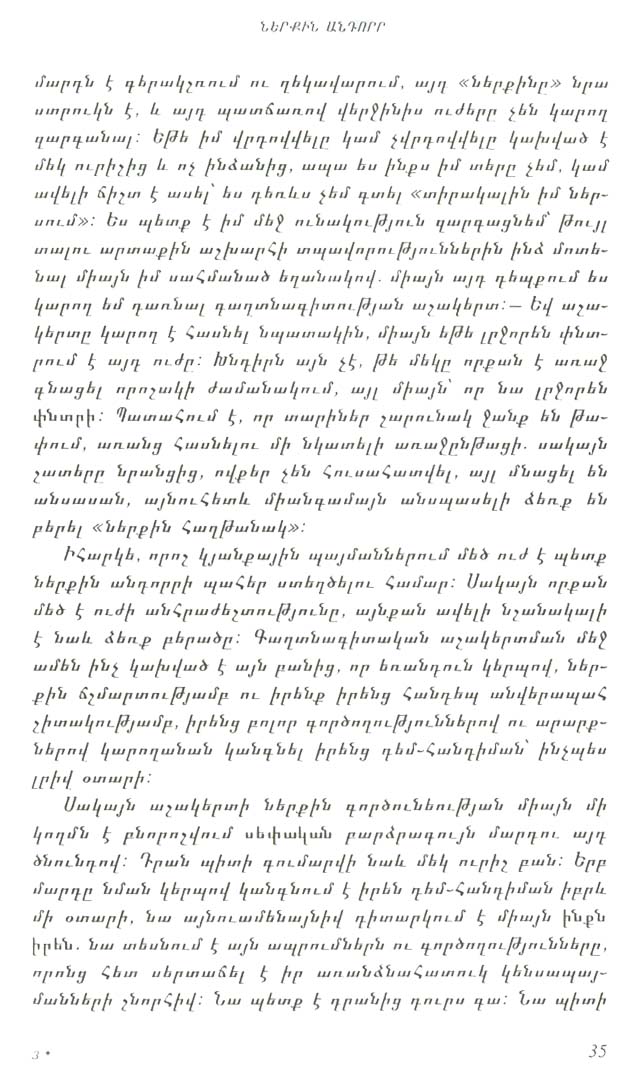 ՆԵՐՔԻՆ ԱՆԴՈՐՐ
մարդն է գերակշռում ու ղեկավարում, այդ «ներքինը» նրա
ստրուկն է, և այդ պատճառով վերջինիս ուժերը չեն կարող
զարգանալ: Եթե իմ վրդովվելը կամ չվրդովվելը կախված է
մեկ ուրիշից և ոչ ինձանից, ապա ես ինքս իմ տերը չեմ, կամ
ավելի ճիշտ է ասել՝ ես դեռևս չեմ գտել «տիրակալին իմ ներ-
սում»: Ես պետք է իմ մեջ ունակություն զարգացնեմ՝ թույլ
տալու արտաքին աշխարհի տպավորություններին ինձ մոտե-
նալ միայն իմ սահմանած եղանակով. միայն այդ դեպքում ես
կարող եմ դառնալ գաղտնագիտության աշակերտ:— Եվ աշա-
կերտը կարող է հասնել նպատակին, միայն եթե լրջորեն փնտ-
րում է այդ ուժը: Խնդիրն այն չէ, թե մեկը որքան է առաջ
գնացել որոշակի ժամանակում, այլ միայն՝ որ նա լրջորեն
փնտրի: Պատահում է, որ տարիներ շարունակ ջանք են թա-
փում, առանց հասնելու մի նկատելի առաջընթացի. սակայն
շատերը նրանցից, ովքեր չեն հուսահատվել, այլ մնացել են
անսասան, այնուհետև միանգամայն անսպասելի ձեռք են
բերել «ներքին հաղթանակ»:
Իհարկե, որոշ կյանքային պայմաններում մեծ ուժ է պետք
ներքին անդորրի պահեր ստեղծելու համար: Սակայն որքան
մեծ է ուժի անհրաժեշտությունը, այնքան ավելի նշանակալի
է նաև ձեռք բերածը: Գաղտնագիտական աշակերտման մեջ
ամեն ինչ կախված է այն բանից, որ եռանդուն կերպով, ներ-
քին ճշմարտությամբ ու իրենք իրենց հանդեպ անվերապահ
շիտակությամբ, իրենց բոլոր գործողություններով ու արարք-
ներով կարողանան կանգնել իրենց դեմ-հանդիման՝ ինչպես
լրիվ օտարի:
Սակայն աշակերտի ներքին գործունեության միայն մի
կողմն է բնորոշվում սեփական բարձրագույն մարդու այդ
ծնունդով: Դրան պիտի գումարվի նաև մեկ ուրիշ բան: Երբ
մարդը նման կերպով կանգնում է իրեն դեմ-հանդիման իբրև
մի օտարի, նա այնուամենայնիվ դիտարկում է միայն ինքն
իրեն. նա տեսնում է այն ապրումներն ու գործողությունները,
որոնց հետ սերտաճել է իր առանձնահատուկ կենսապայ-
մանների շնորհիվ: Նա պետք է դրանից դուրս գա: Նա պիտի
3 •
35